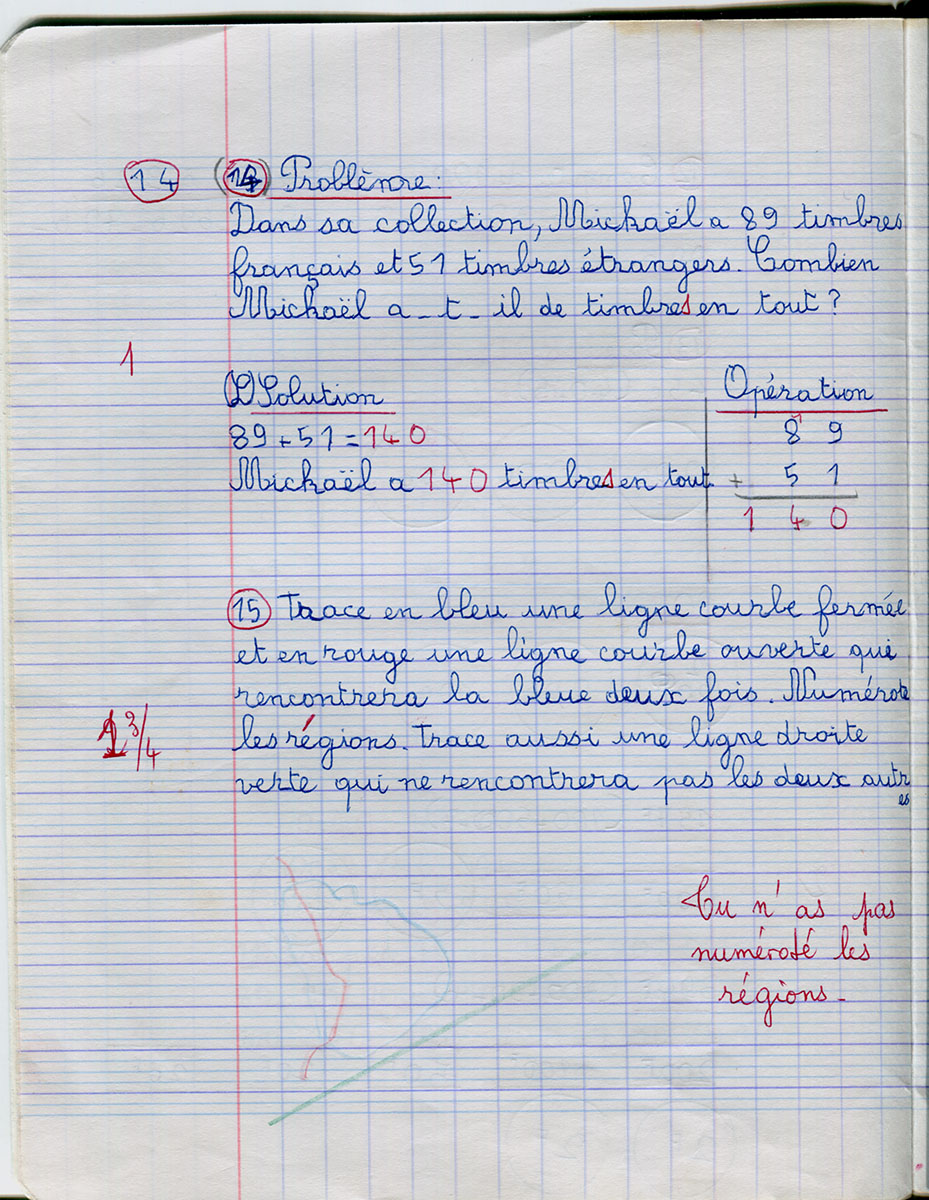 14 (14) Problème :
Dans sa collection, Mickaël a 89 timbres
français et 51 timbres étrangers. Combien
Mickaël a-t-il de timbres en tout ?
1
Solution
89 + 51 = 140
Mickaël a 140 timbres en tout
Opération
1
8 9
+ 5 1
1 4 0
15 Trace en bleu une ligne courbe fermée
et en rouge une ligne courbe ouverte qui
rencontrera la bleue deux fois. Numérote
les régions. Trace aussi une ligne droite
verte qui ne rencontrera pas les deux autres
3/4
Tu n'as pas
numéroté les
régions.